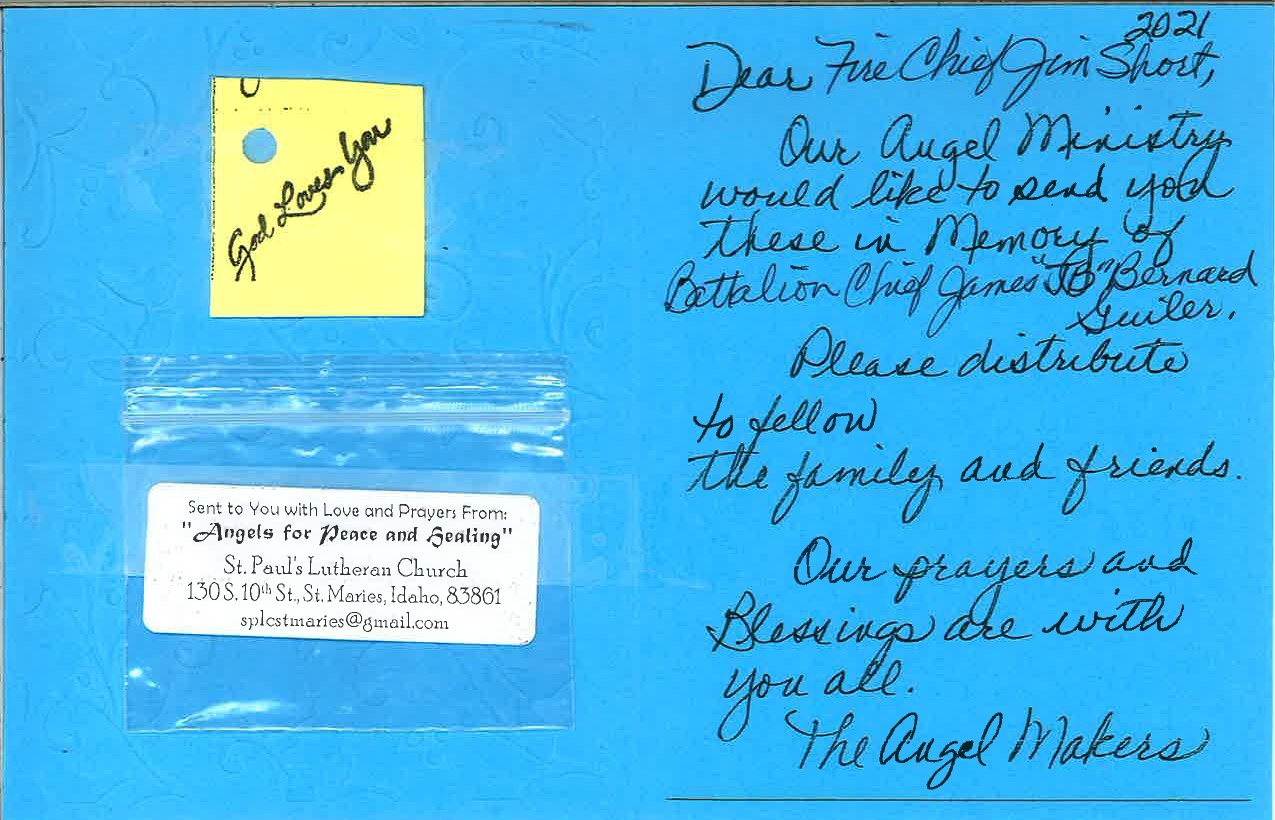 God Loves You
Sent to You with Love and Prayers From:
"Angels for Peace and Healing"
St. Paul's Lutheran Church
130 S. 10th St., St. Maries, Idaho, 83861
splcstmaries@gmail.com
2021
Dear Fire Chief Jim Short,
Our Angel Ministry
would like to send you
these in Memory of
Battalion Chief James "JB" Bernard
Guiler.
Please distribute
to fellow
the family and friends.
Our prayers and
Blessings are with
you all.
The Angel Makers